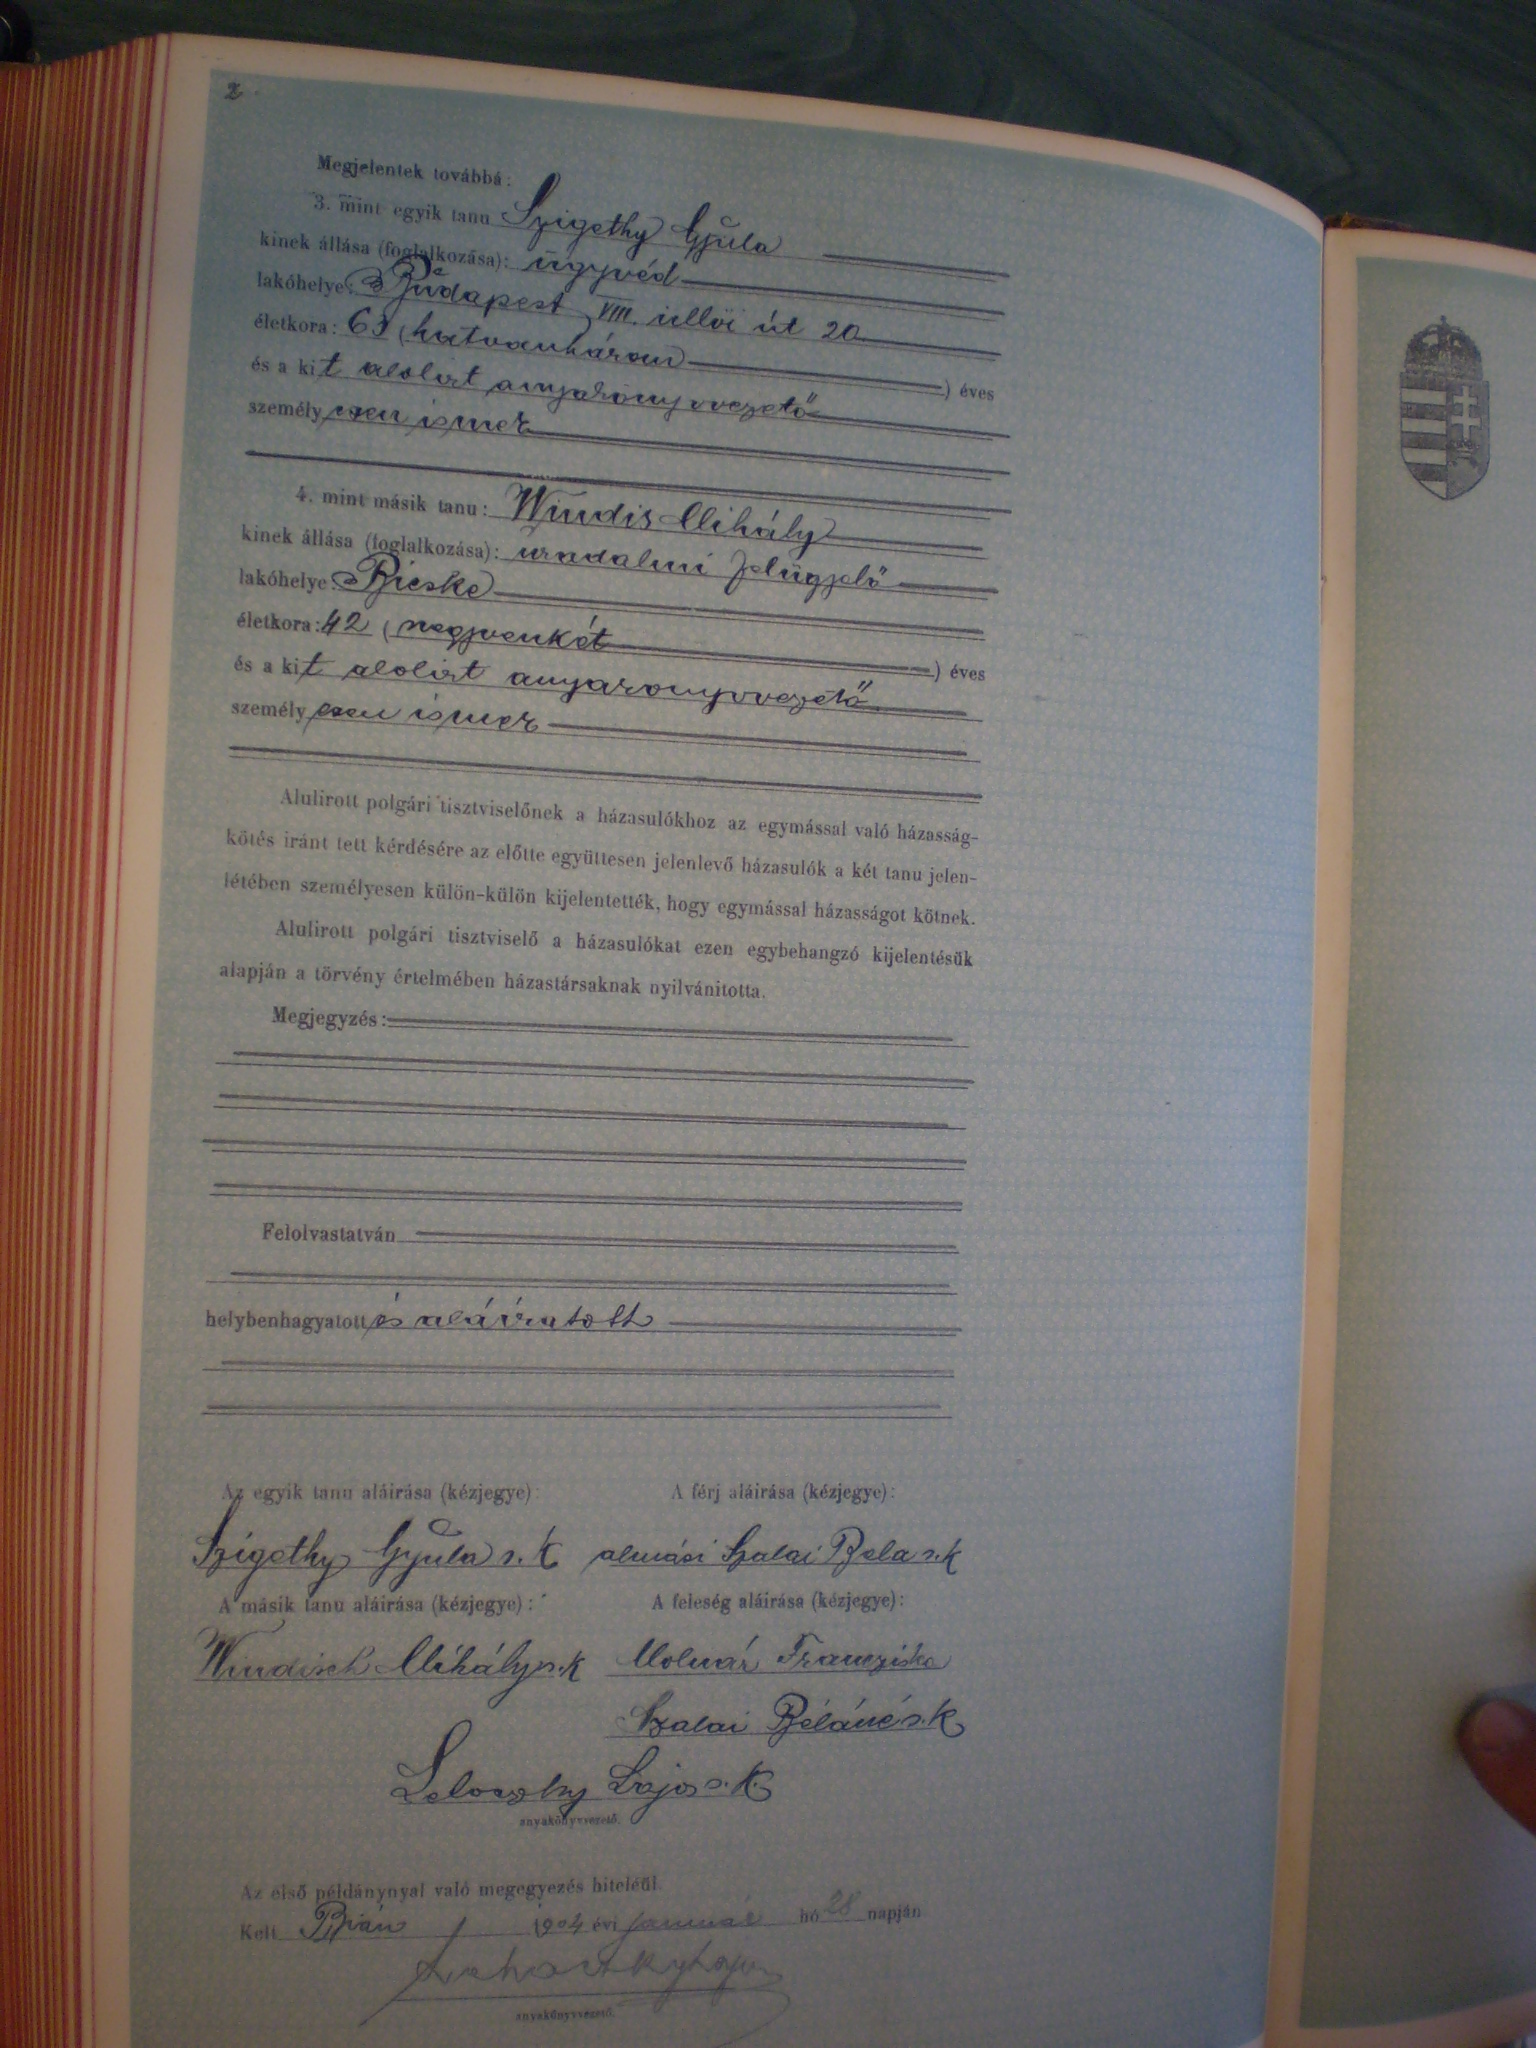 2
Megjelentek továbbá:
3. mint egyik tanu Szigethy Gyula
kinek állása (foglalkozása): ügyvéd
lakóhelye: Budapest VIII. üllöi út 20
életkora: 63 (hatvanhárom) éves
és a kit alolirt anyakönyvvezető
személyesen ismer
4. mint másik tanu: Windis Mihály
kinek állása (foglalkozása): uradalmi felügyelö
lakóhelye: Bicske
életkora: 42 (negyvenkét) éves
és a kit alolirt anyakönyvvezető
személyesen ismer
Alulirott polgári tisztviselőnek a házasulókhoz az egymással való házasság-
kötés iránt tett kérdésére az előtte együttesen jelenlevő házasulók a két tanu jelen-
létében személyesen külön-külön kijelentették, hogy egymással házasságot kötnek.
Alulirott polgári tisztviselő a házasulókat ezen egybehangzó kijelentésük
alapján a törvény értelmében házastársaknak nyilvánitotta.
Megjegyzés:
Felolvastatván
helybenhagyatott és aláiratott
Az egyik tanu aláirása (kézjegye): A férj aláirása (kézjegye):
Szigethy Gyula s. k almási Szalai Bela s. k
A másik tanu aláirása (kézjegye): A feleség aláirása (kézjegye):
Windisch Mihály s. k Molnár Franciska
Szalai Béláné s. k
Lajos s. k.
anyakönyvvezető.
Az első példánynyal való megegyezés hiteléül.
Kelt Bián, 1904 évi január hó 28 napján
anyakönyvvezető.